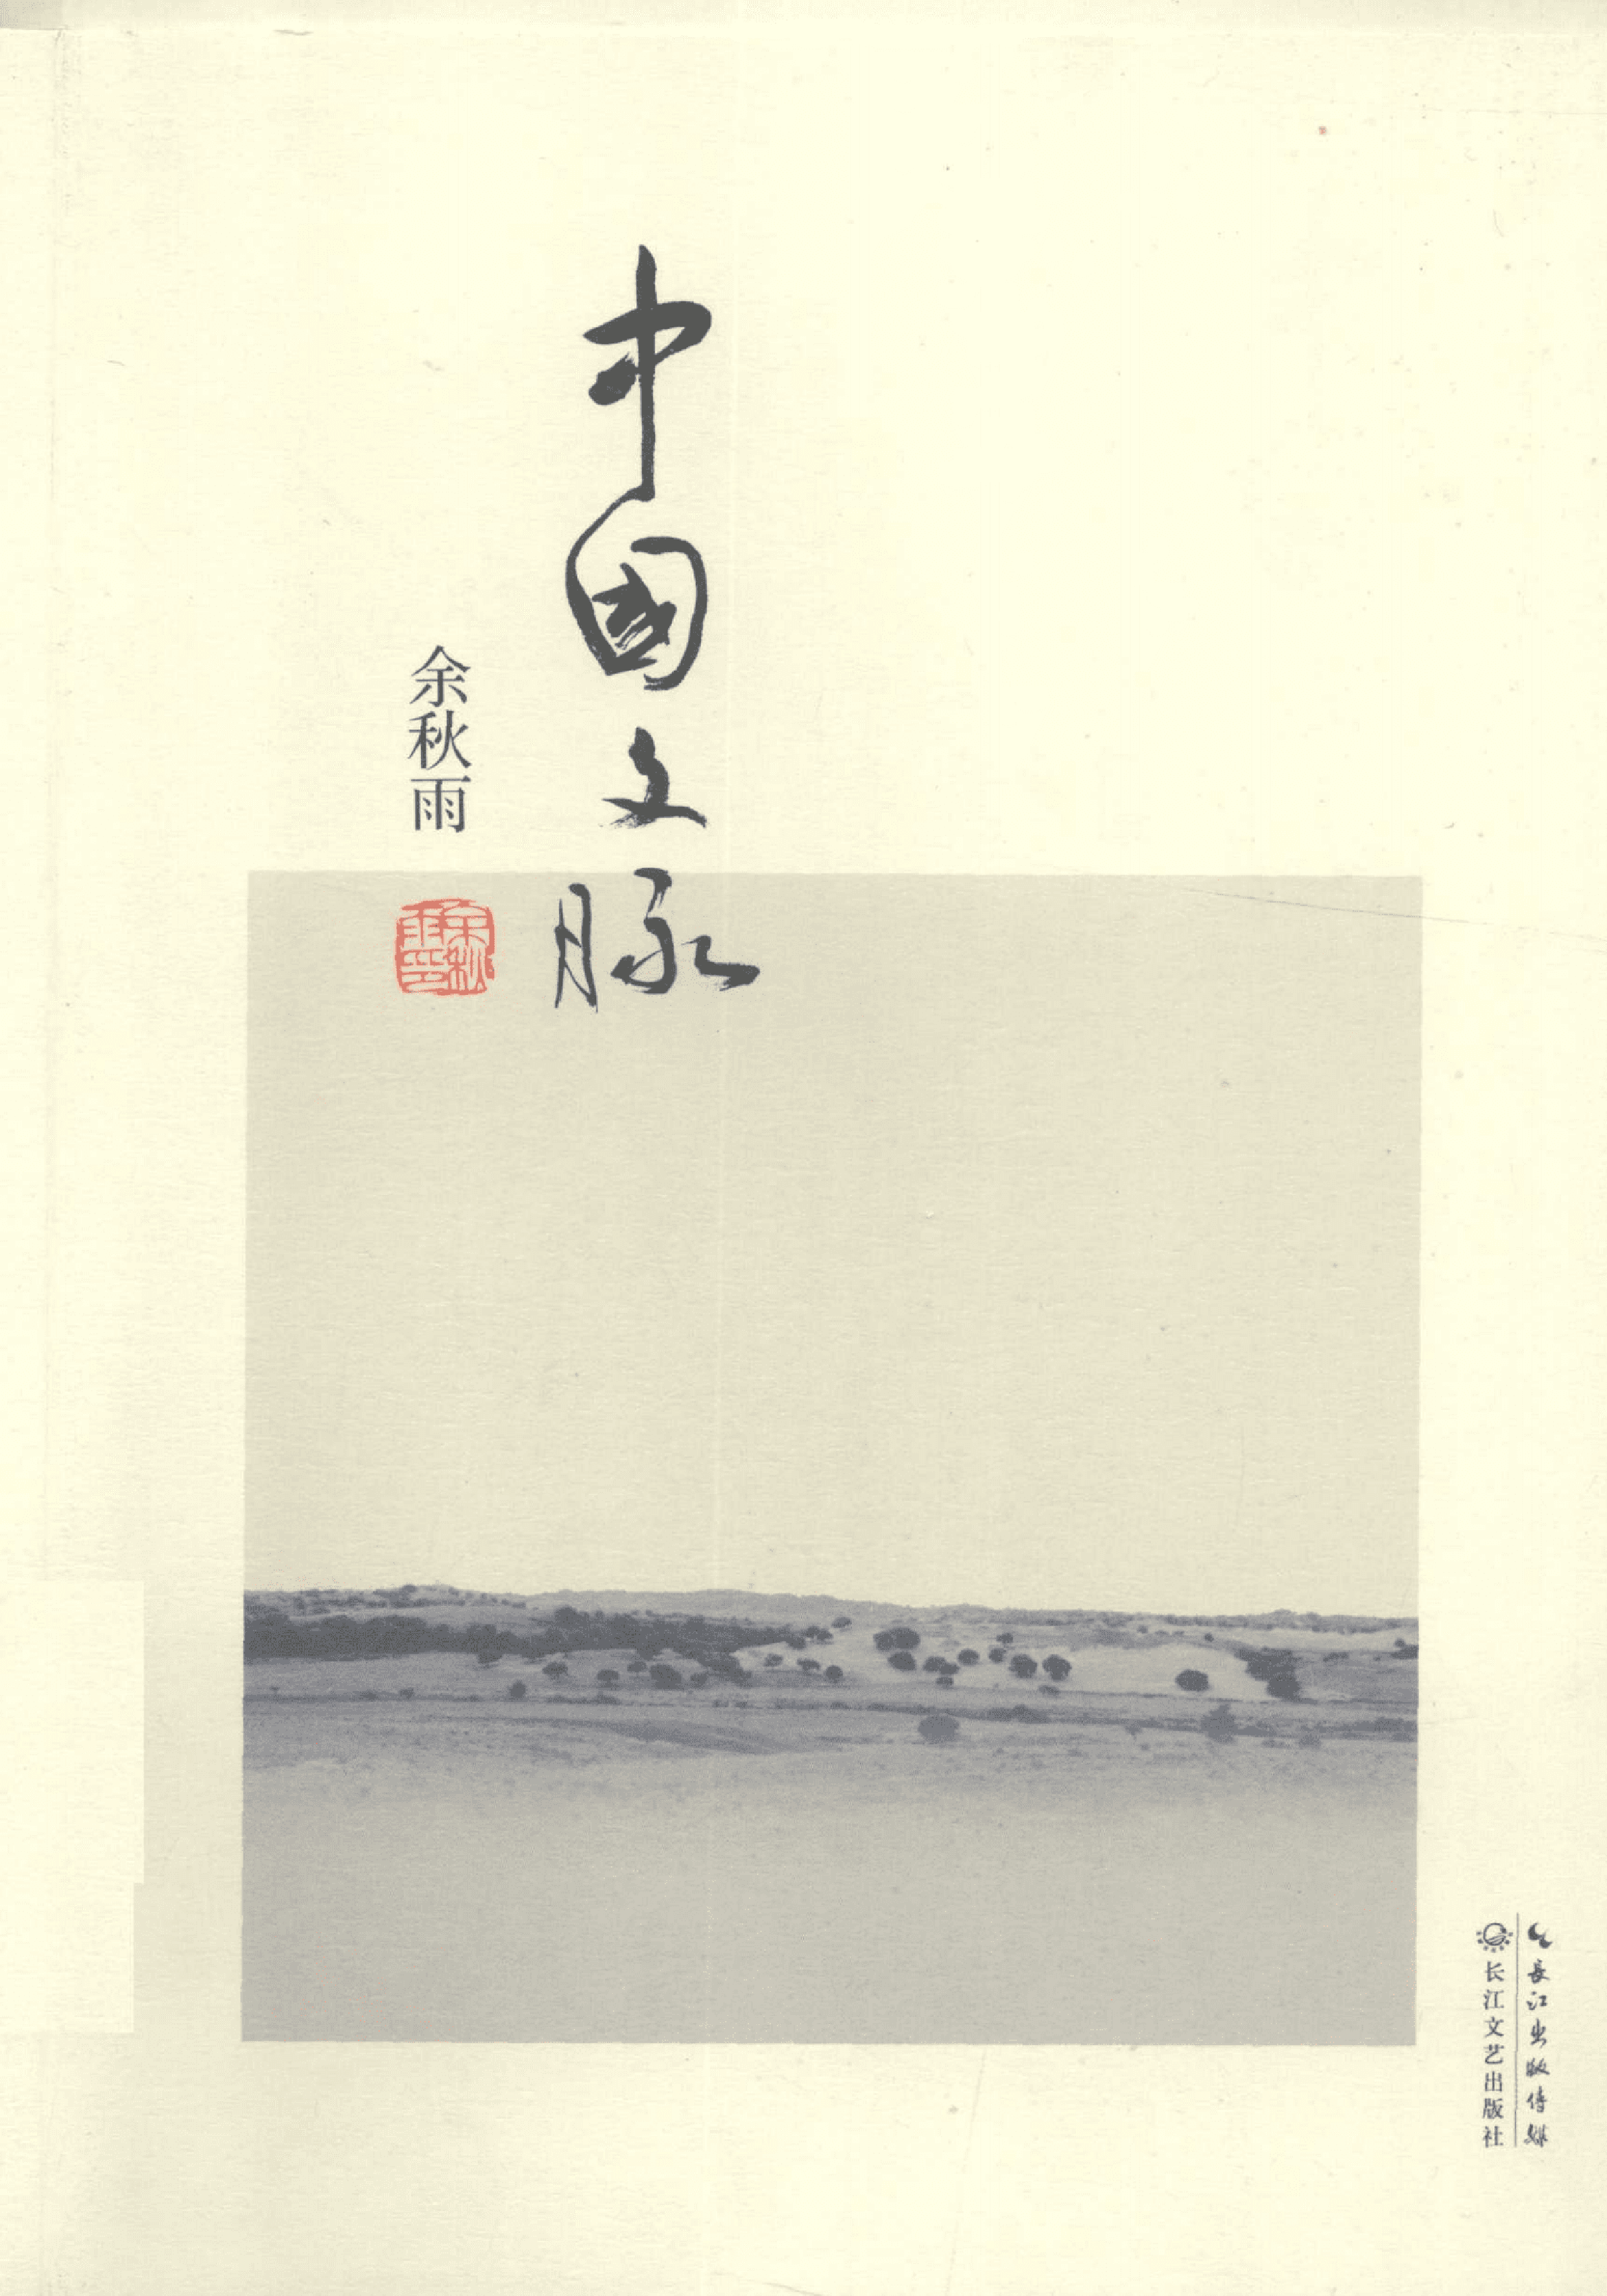 中國文脉
余秋雨
余秋雨印
長江出版传媒
长江文艺出版社